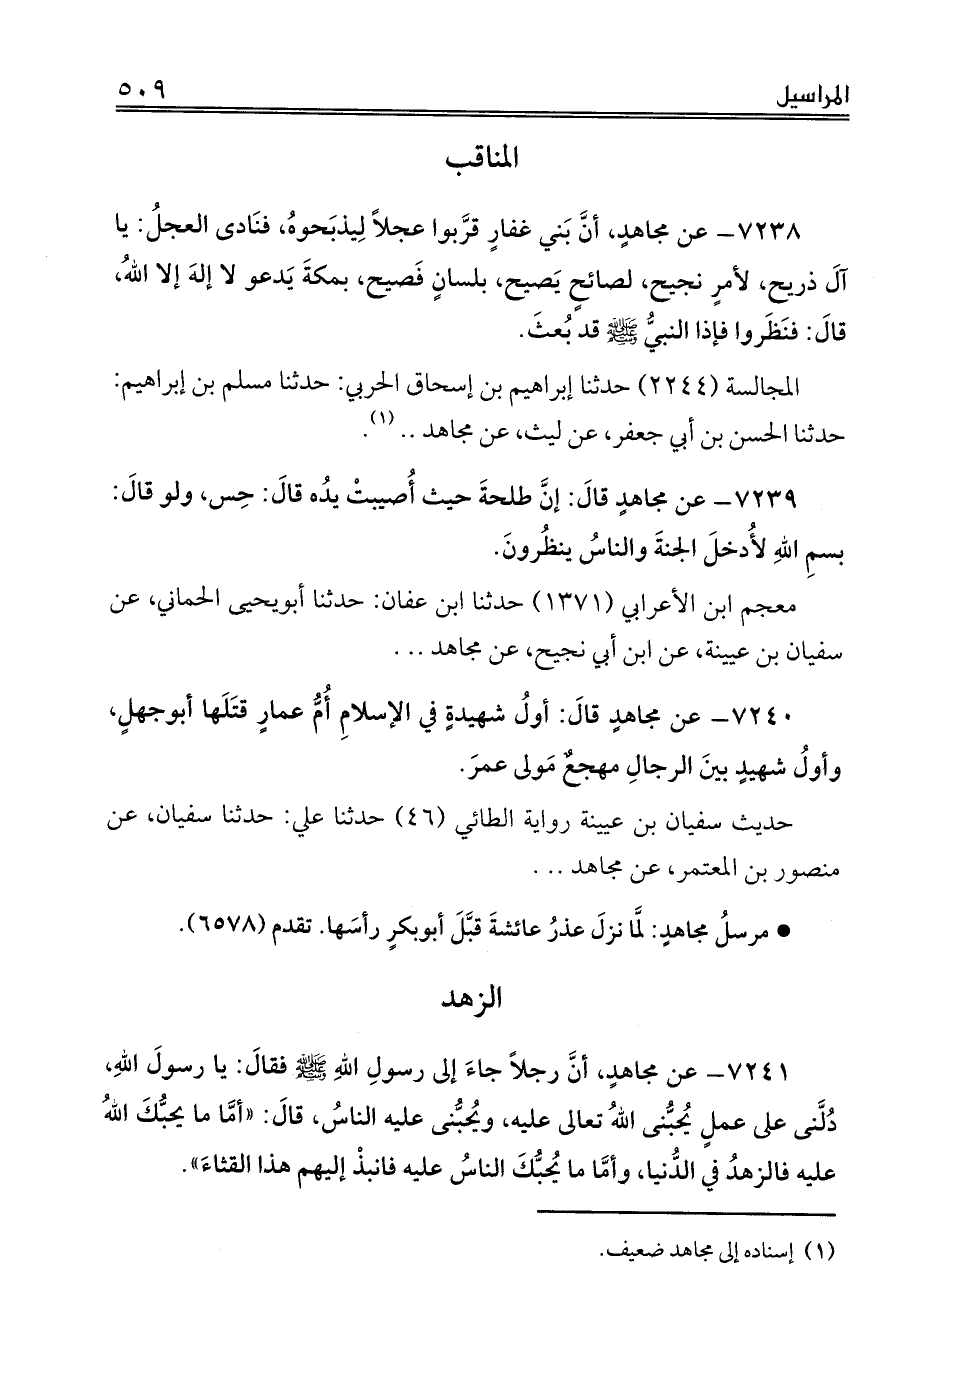 المراسيل ٥٠٩
المناقب
٧٢٣٨ـ عن مجاهدٍ، أنَّ بَني غفارٍ قرَّبوا عجلاً لِيذبَحوهُ، فنَادى العجلُ: يا
آلَ ذريح، لأمرٍ نجيح، لصائحٍ يَصيح، بلسانٍ فَصيح، بمكةَ يَدعو لا إلهَ إلا اللهُ،
قالَ: فنَظَروا فإذا النبيُّ ﷺ قد بُعثَ.
المجالسة (٢٢٤٤) حدثنا إبراهيم بن إسحاق الحربي: حدثنا مسلم بن إبراهيم:
حدثنا الحسن بن أبي جعفر، عن ليث، عن مجاهد .. (١).
٧٢٣٩ـ عن مجاهدٍ قالَ: إنَّ طلحةَ حيث أُصيبتْ يدُه قالَ: حِس، ولو قالَ:
بسمِ اللهِ لأُدخلَ الجنةَ والناسُ ينظُرونَ.
معجم ابن الأعرابي (١٣٧١) حدثنا ابن عفان: حدثنا أبويحيى الحماني، عن
سفيان بن عيينة، عن ابن أبي نجيح، عن مجاهد ...
٧٢٤٠ـ عن مجاهدٍ قالَ: أولُ شهيدةٍ في الإسلامِ أُمُّ عمارٍ قتَلَها أبوجهلٍ،
وأولُ شهيدٍ بينَ الرجالِ مهجعٌ مَولى عمرَ.
حديث سفيان بن عيينة رواية الطائي (٤٦) حدثنا علي: حدثنا سفيان، عن
منصور بن المعتمر، عن مجاهد ...
● مرسلُ مجاهدٍ: لمَّا نزلَ عذرُ عائشةَ قبَّلَ أبوبكرٍ رأسَها. تقدم (٦٥٧٨).
الزهد
٧٢٤١ـ عن مجاهدٍ، أنَّ رجلاً جاءَ إلى رسولِ اللهِ ﷺ فقالَ: يا رسولَ اللهِ،
دُلَّنى على عملٍ يُحبُّنى اللهُ تعالى عليه، ويُحبُّنى عليه الناسُ، قالَ: «أمَّا ما يحبُّكَ اللهُ
عليه فالزهدُ في الدُّنيا، وأمَّا ما يُحبُّكَ الناسُ عليه فانبذْ إليهم هذا القثاءَ».
(١) إسناده إلى مجاهد ضعيف.